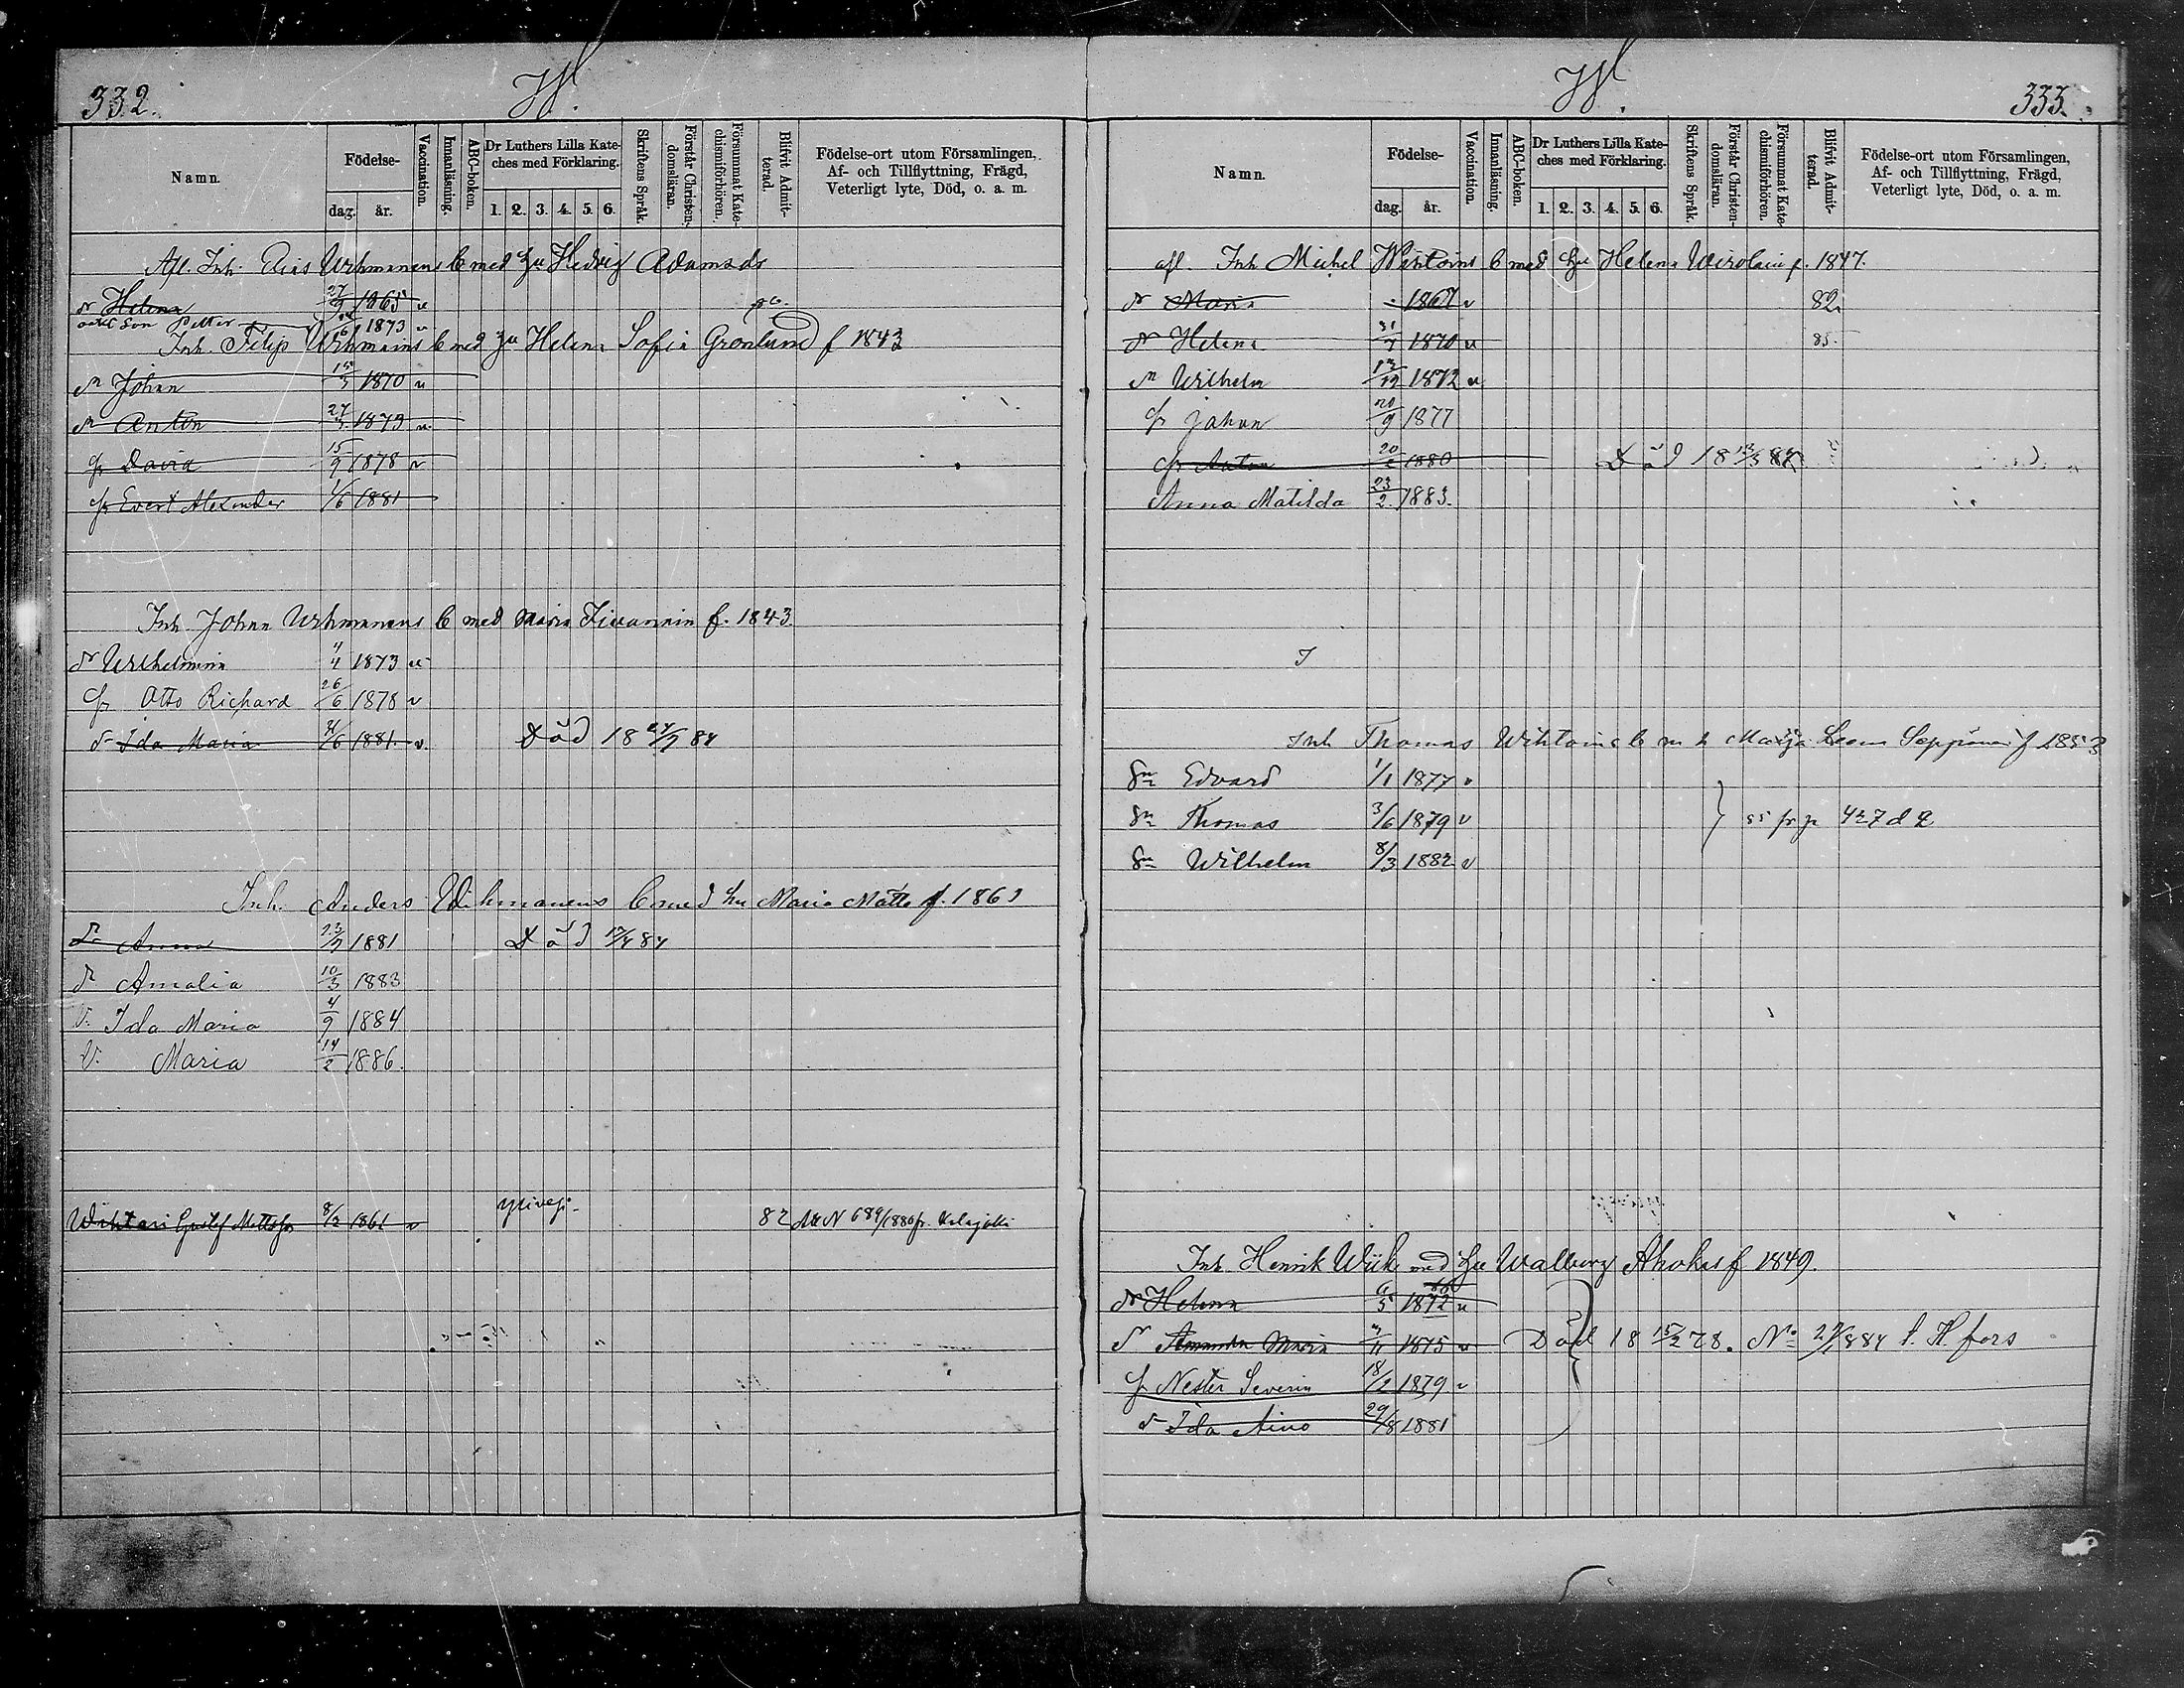 332.
W.
Namn.
Födelse-
dag. år.
Vaccination.
Innanläsning.
ABC-boken.
Dr Luthers Lilla Kate-
ches med Förklaring.
1. 2. 3. 4. 5. 6.
Skriftens Språk.
Förstår Christen-
domsläran.
Försummat Kate-
chismiförhören.
Blifvit Admit-
terad.
Födelse-ort utom Församlingen,
Af- och Tillflyttning, Frägd,
Veterligt lyte, Död, o. a. m.
Afl. Inh. Elias Uhmanens b med Hu Hedvig Adamsdr
dr Helena 27/9 1865 v
Son Petter 1873 v
Inh. Filip Uhmanins b med Hu Helena Sofia Grönlund f 1843
Johan 15/5 1870 v
Anton 27/3 1873 v
David 15/9 1878 v
Evert Alexander 1/6 1881
Inh Johan Uhmanens b med Maria f. 1843.
dr Wilhelmina 4/4 1873 v
Otto Richard 26/6 1878 v
dr Ida Maria 1881. v Död 18 84
Inh. Anders Wihmanens b med hu Maria Matts f. 1861
dr Anna 1881 Död 84
dr Amalia 10/3 1883
Ida Maria 4/9 1884
Maria 14/2 1886.
Wihtari Gustf Mattsson 8/3 1861 v 82 Att N 689/1880 fr. Kalajoki
W.
333.
Namn.
Födelse-
dag. år.
Vaccination.
Innanläsning.
ABC-boken.
Dr Luthers Lilla Kate-
ches med Förklaring.
1. 2. 3. 4. 5. 6.
Skriftens Språk.
Förstår Christen-
domsläran.
Försummat Kate-
chismiförhören.
Blifvit Admit-
terad.
Födelse-ort utom Församlingen,
Af- och Tillflyttning, Frägd,
Veterligt lyte, Död, o. a. m.
afl. Inh Michel Wihtoins b med Hu Helena Wirolain f. 1847.
dr Maria 1867 v 82
dr Helena 31/7 1870 v 85.
Wilhelm 1872 v
Johan 20/9 1877
Anton 1880 Död 18
Anna Matilda 23/2. 1883.
Inh Thomas Wihtoins b m h Maija Leena Seppänen f 1853
Sn Edvard 1/1 1877 v
Sn Thomas 3/6 1879 v 427
Sn Wilhelm 8/3 1882 v
Inh. Henrik Wiik med hu Walborg Ahokas f 1849.
dr Helena 1872 v
dr Amanda Maria 1875 v Död 18 15/2 78. No 1884 t. H.fors
Nestor Severin 18/2 1879 v
dr Ida Aino 29/8 1881